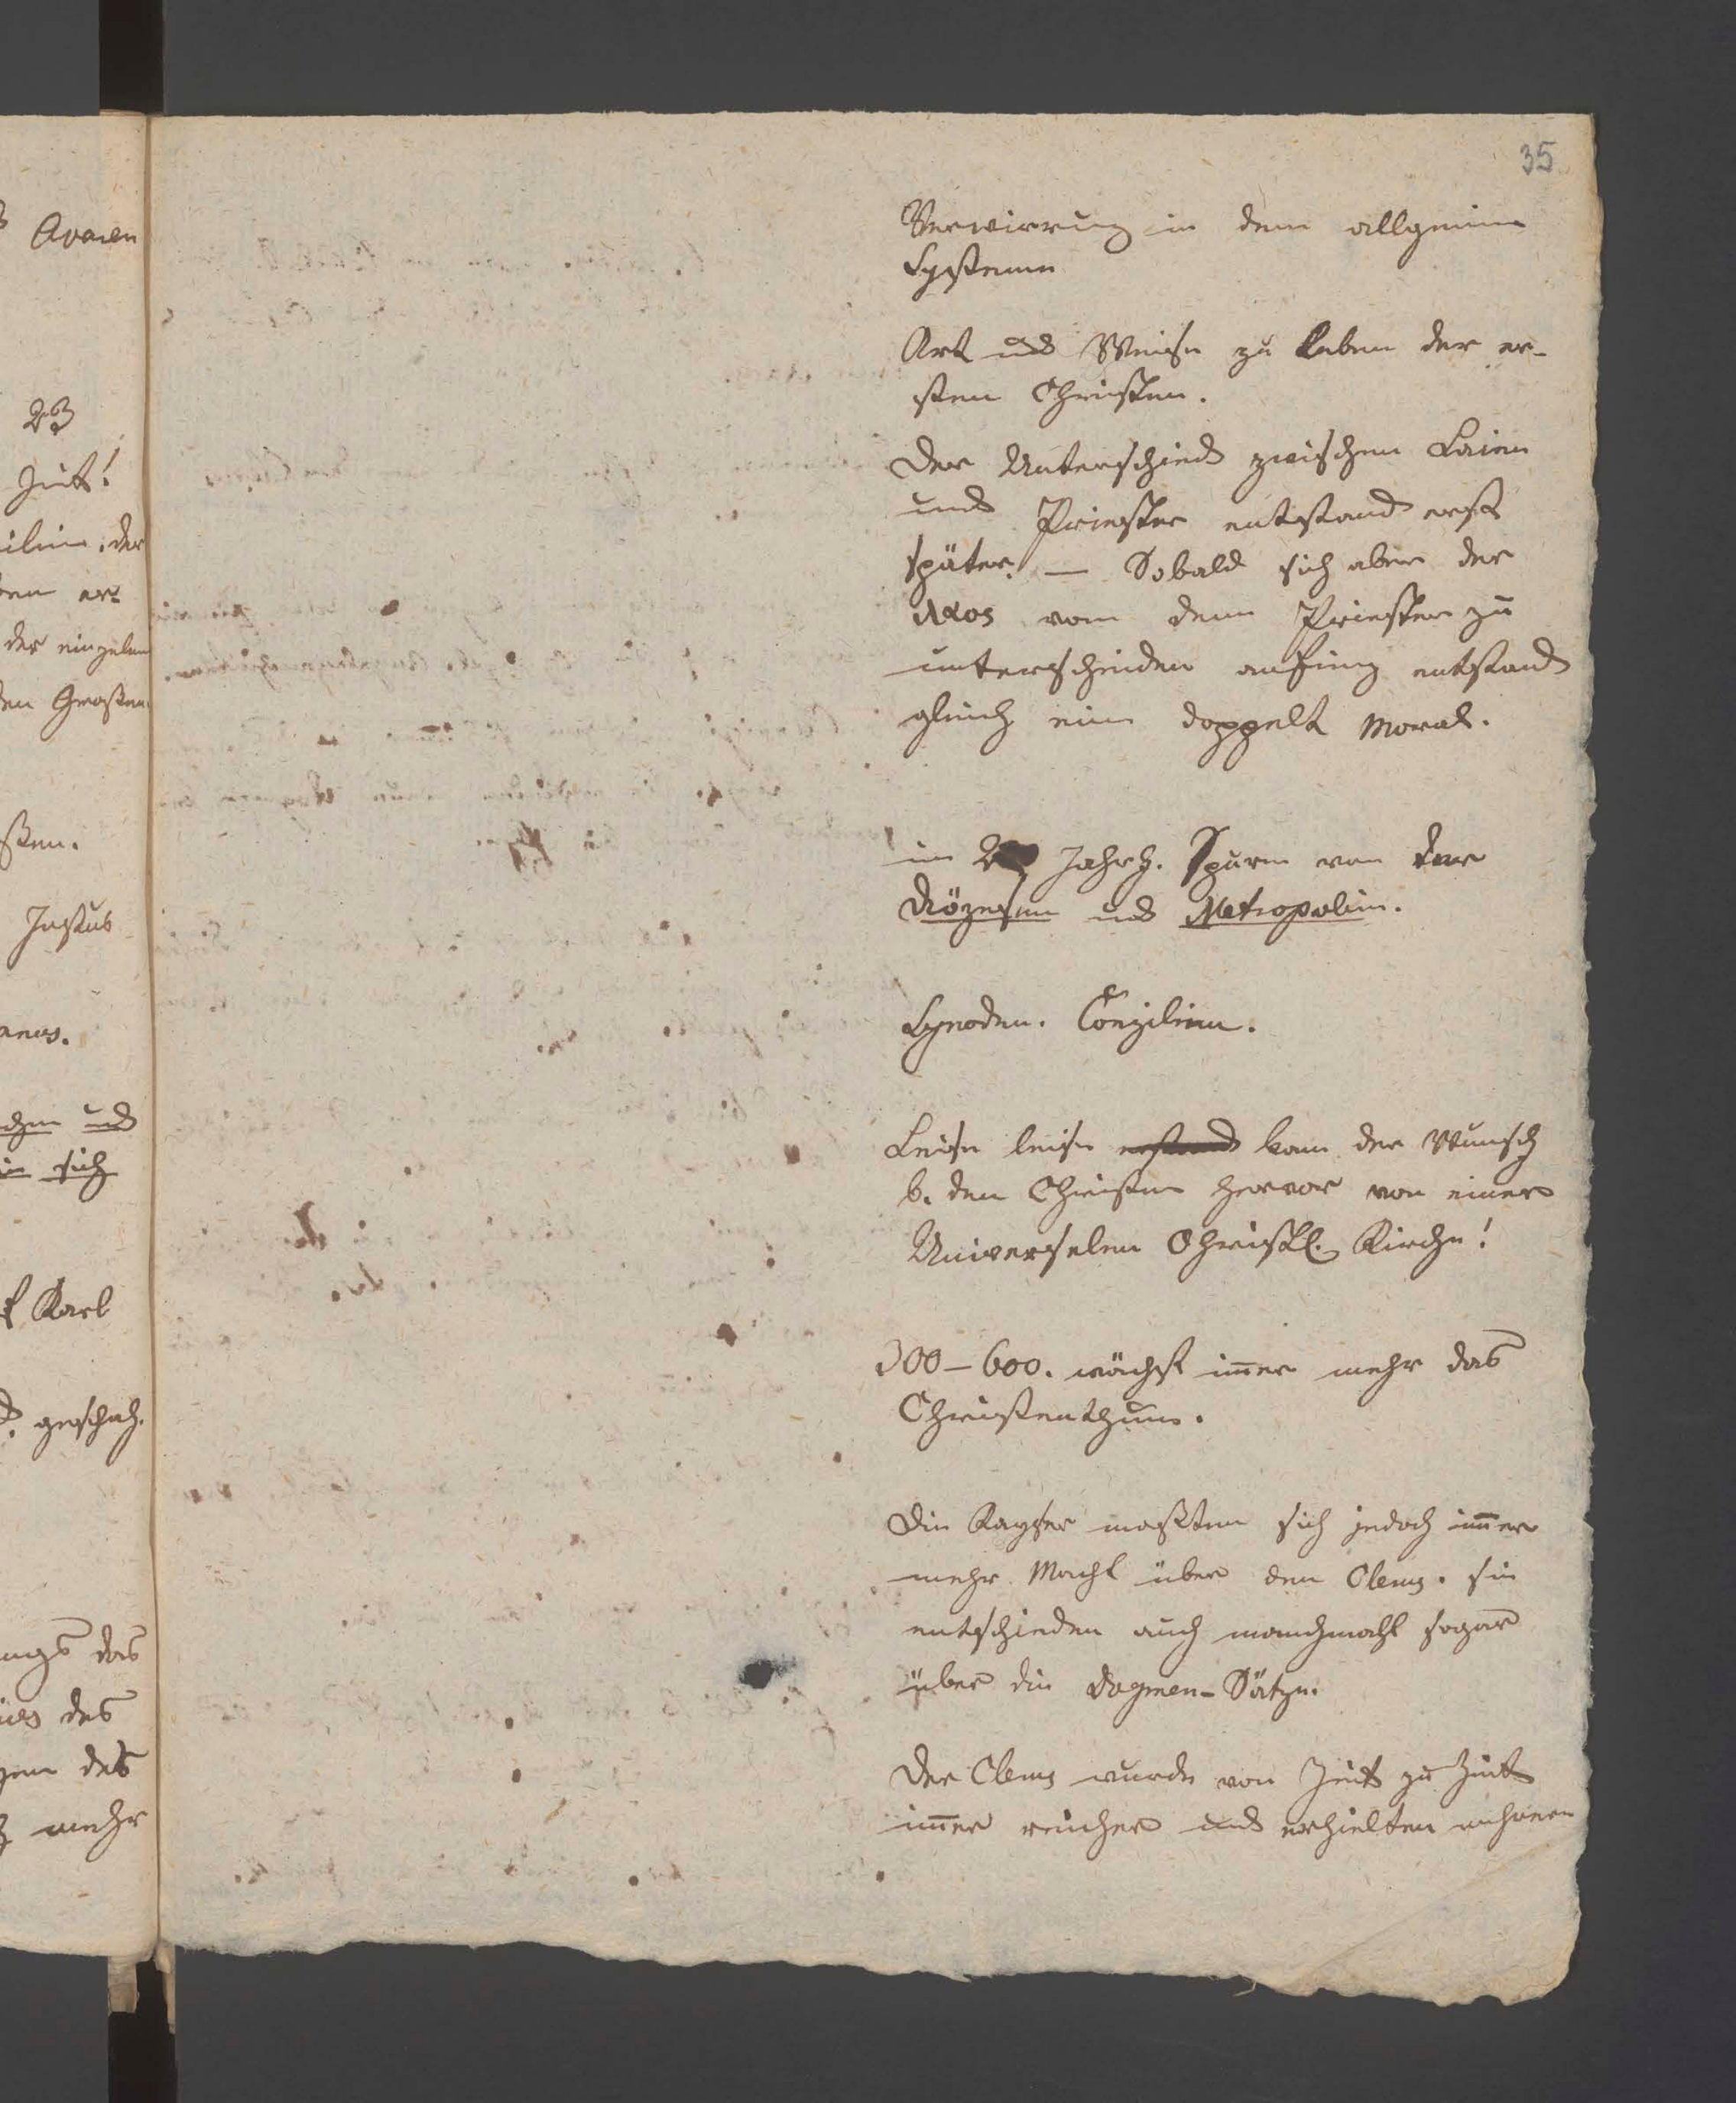 35
Verwirrung in dem allgemeinen
Systeme
Art und Weise zu leben der er-
sten Christen.
Der Unterschied zwischen Laien
und Priester entstand erst
später. — Sobald sich aber der
λαος von dem Priester zu
unterscheiden anfing entstand
gleich eine doppelte Moral.
im 2 Jahrh. Spuren von der
Diözesen und Metropolien.
Synoden. Conzilien.
Leise leise entstand kam der Wunsch
b. den Christen hervor von einer
Universelen Christl. Kirche!
300–600. wächst im̄er mehr das
Christenthum.
Die Kayser maßten sich jedoch im̄er
mehr Macht über den Clerus. sie
entschieden auch manchmahl sogar
über die Dogmen-Sätze.
Der Clerus wurde von Zeit zu Zeit
im̄er reicher und erhielten mehrere
Avaren
23
Zeit!
ilien. der
en er=
der einzelnen
en Großen.
ßen.
Justus
aneus.
chen und
in sich
Karl
geschah.
ngs das
des
gen des
mehr